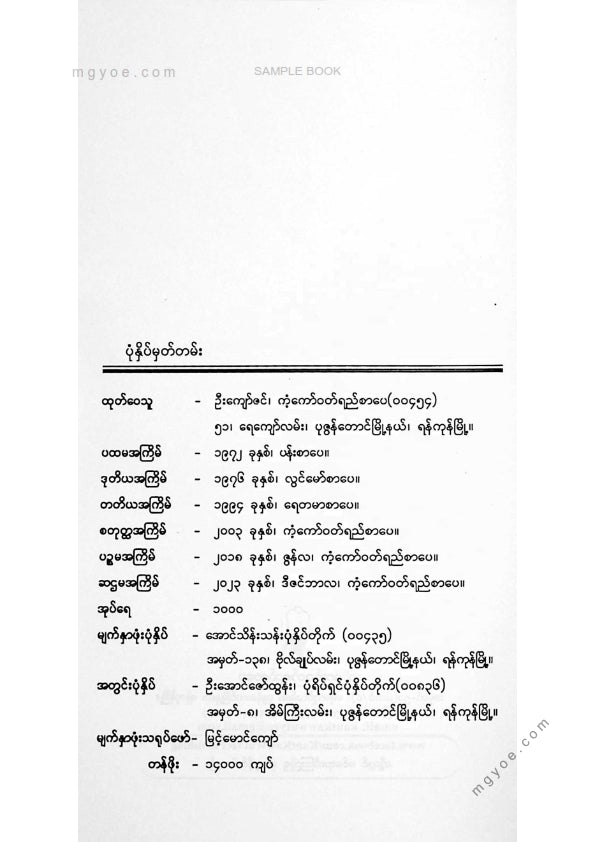 mgyoe.com
SAMPLE BOOK
ပုံနှိပ်မှတ်တမ်း
ထုတ်ဝေသူ - ဦးကျော်ဇင်၊ ကံ့ကော်ဝတ်ရည်စာပေ(၀၀၄၅၄)
၅၁၊ ရေကျော်လမ်း၊ ပုဇွန်တောင်မြို့နယ်၊ ရန်ကုန်မြို့။
ပထမအကြိမ် - ၁၉၇၂ ခုနှစ်၊ ပန်းစာပေ။
ဒုတိယအကြိမ် - ၁၉၇၆ ခုနှစ်၊ လွင်မော်စာပေ။
တတိယအကြိမ် - ၁၉၉၄ ခုနှစ်၊ ရေတမာစာပေ။
စတုတ္ထအကြိမ် - ၂၀၀၃ ခုနှစ်၊ ကံ့ကော်ဝတ်ရည်စာပေ။
ပဉ္စမအကြိမ် - ၂၀၁၈ ခုနှစ်၊ ဇွန်လ၊ ကံ့ကော်ဝတ်ရည်စာပေ။
ဆဋ္ဌမအကြိမ် - ၂၀၂၃ ခုနှစ်၊ ဒီဇင်ဘာလ၊ ကံ့ကော်ဝတ်ရည်စာပေ။
အုပ်ရေ - ၁၀၀၀
မျက်နှာဖုံးပုံနှိပ် - အောင်သိန်းသန်းပုံနှိပ်တိုက် (၀၀၄၃၅)
အမှတ်-၁၃၈၊ ဗိုလ်ချုပ်လမ်း၊ ပုဇွန်တောင်မြို့နယ်၊ ရန်ကုန်မြို့။
အတွင်းပုံနှိပ် - ဦးအောင်ဇော်ထွန်း၊ ပုံရိပ်ရှင်ပုံနှိပ်တိုက်(၀၀၈၃၆)
အမှတ်-၈၊ အိမ်ကြီးလမ်း၊ ပုဇွန်တောင်မြို့နယ်၊ ရန်ကုန်မြို့။
မျက်နှာဖုံးသရုပ်ဖော်- မြင့်မောင်ကျော်
တန်ဖိုး - ၁၄၀၀၀ ကျပ်
mgyoe.com